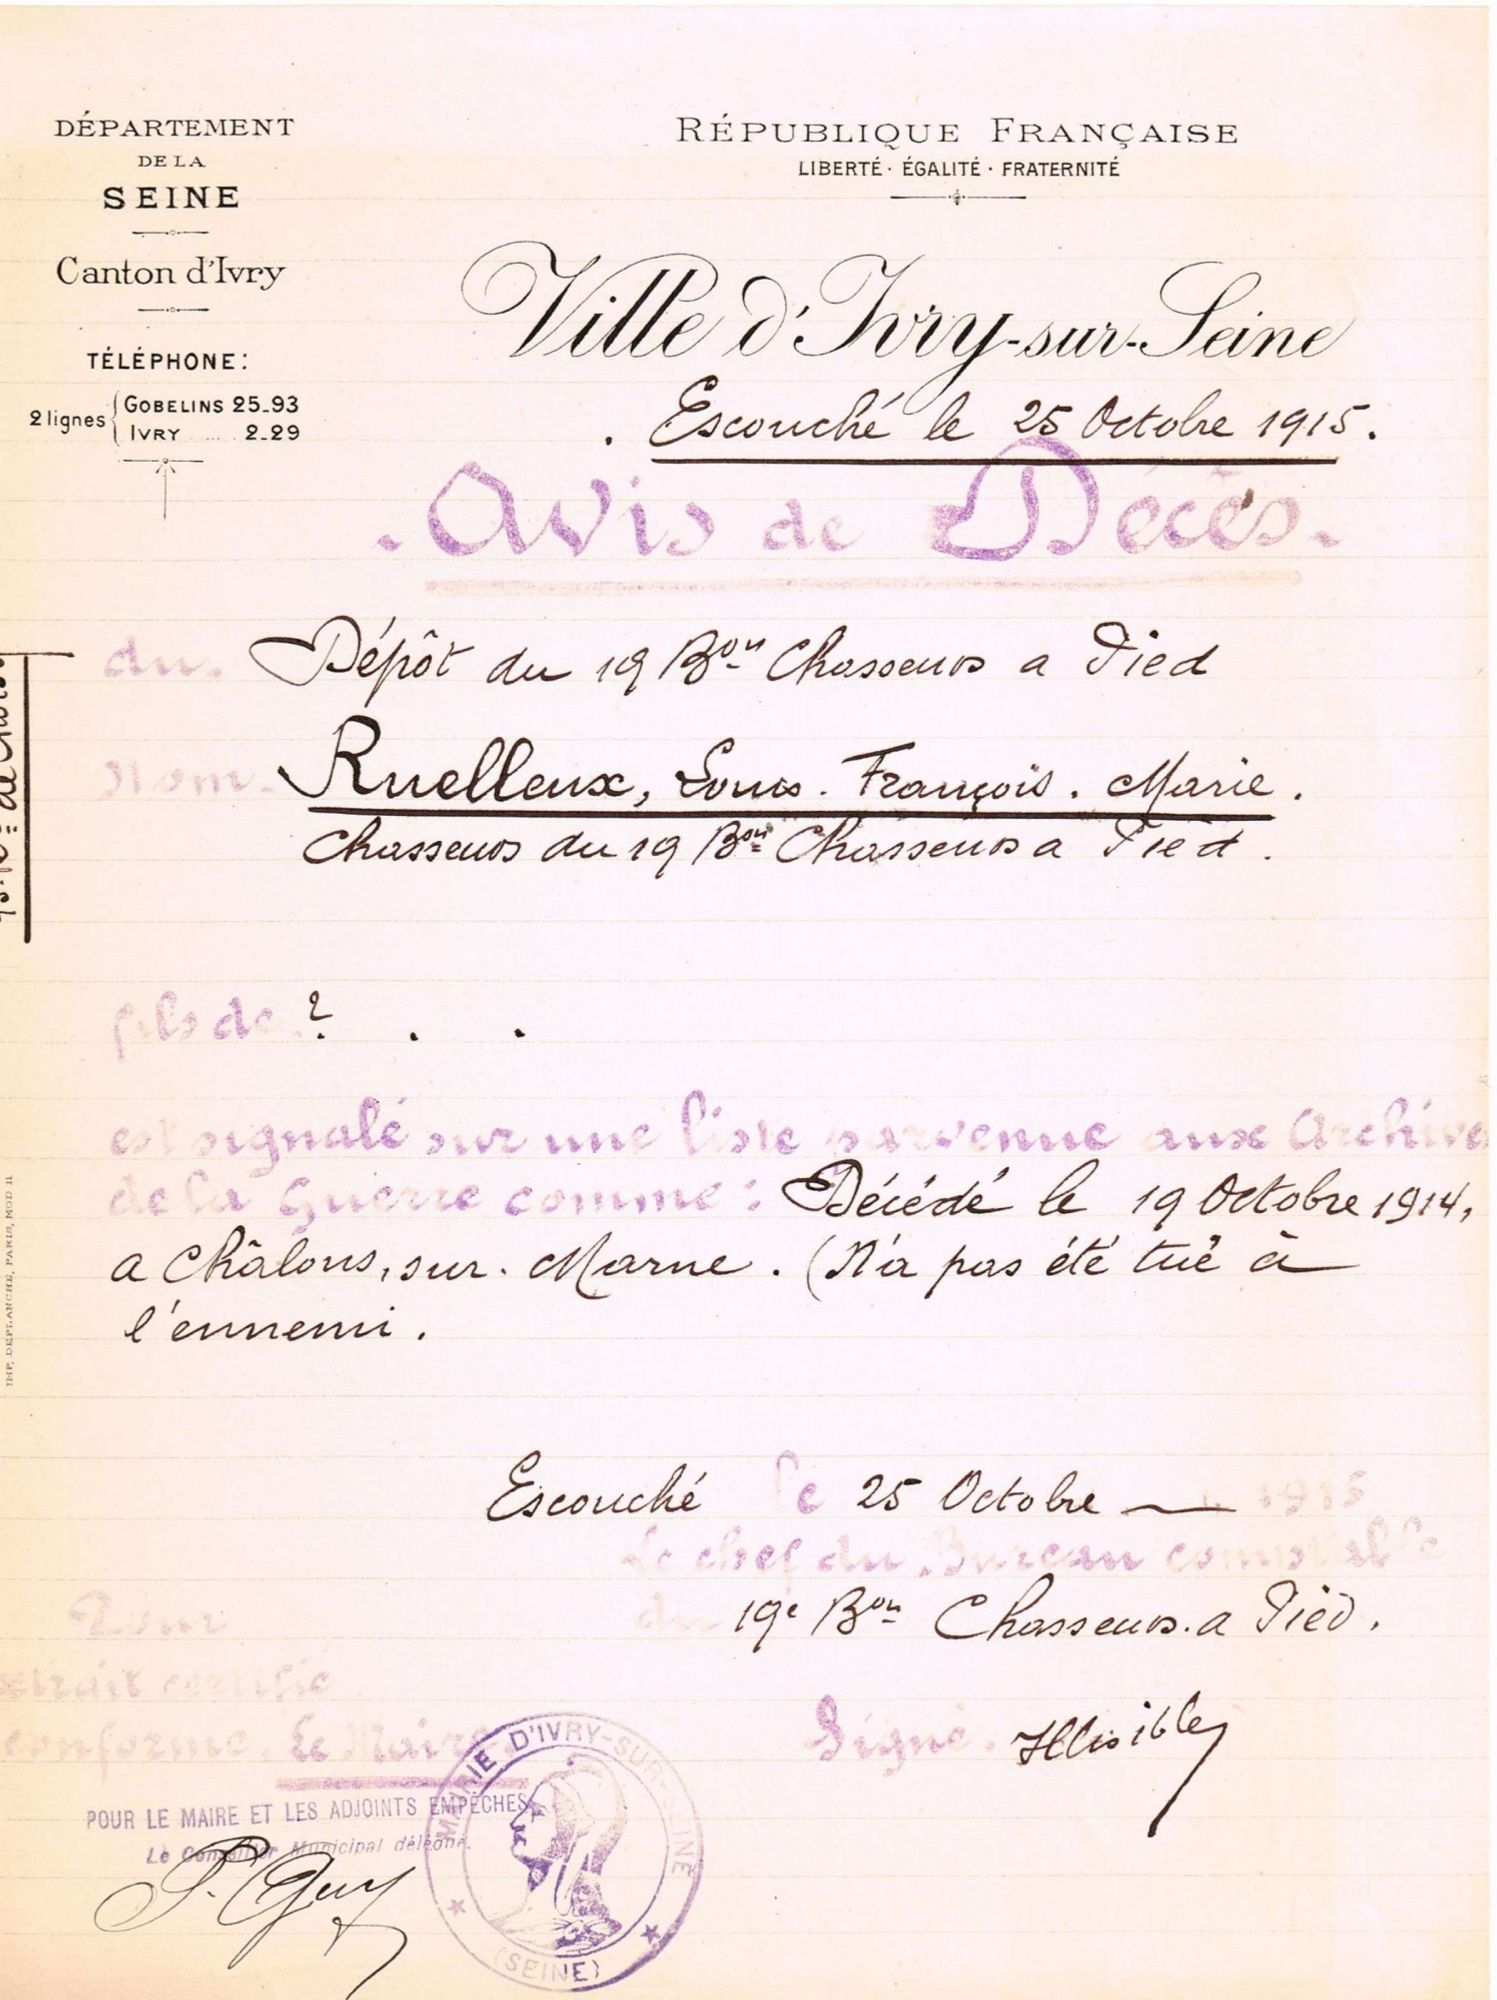 DÉPARTEMENT
DE LA
SEINE
Canton d'Ivry
TÉLÉPHONE:
2 lignes { GOBELINS 25-93
IVRY .... 2-29
RÉPUBLIQUE FRANÇAISE
LIBERTÉ · ÉGALITÉ · FRATERNITÉ
Ville d'Ivry-sur-Seine
. Escouché le 25 Octobre 1915.
. Avis de Décès.
du. Dépôt du 19 Bon Chasseurs a Pied
Nom. Ruelleux, Louis. François. Marie.
Chasseurs du 19 Bon Chasseurs a Pied.
fils de ? . .
est signalé sur une liste parvenue aux Archives
de la Guerre comme : Décédé le 19 Octobre 1914,
a Châlons, sur. Marne. (N'a pas été tué à
l'ennemi.
Escouché le 25 Octobre — 1915
Le chef du Bureau comptable
du 19e Bon Chasseurs. a Pied.
Signé. Illisible
Pour
extrait certifié
conforme. Le Maire.
POUR LE MAIRE ET LES ADJOINTS EMPÊCHES
Le Conseiller Municipal délégué.
P. Guy
MAIRIE D'IVRY-SUR-SEINE
(SEINE)
IMP. DEPLANCHE, PARIS, MOD 11